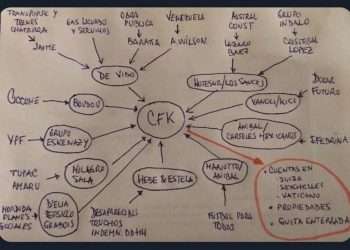 TRANSPORTE Y
TRENES
CHATARRA
GAS LICUADO
Y SERVICIOS
OBRA
PUBLICA
VENEZUELA
AUSTRAL
CONST
GRUPO
INDALO
JAIME
BARATTA
A. WILSON
LAZARO
BAEZ
CRISTOBAL
LOPEZ
DE VIDO
HOTESUR/LOS SAUCES
CICCONE
BOUDOU
VANOLI/KICI
DOLAR
FUTURO
CFK
YPF
GRUPO
ESKENAZY
ANIBAL/
CARTELES MEXICANOS
EFEDRINA
TUPAC
AMARU
MILAGRO
SALA
HEBE & ESTELA
MARIOTTO/
ANIBAL
PLANES
SOCIALES
DELIA
PERSICO
GRABOIS
DESAPARECIDOS
TRUCHOS
INDEMN. DDHH
FUTBOL PARA
TODOS
• CUENTAS EN
- SUIZA
- SEYCHELLES
- VATICANO
• PROPIEDADES
• GUITA ENTERRADA